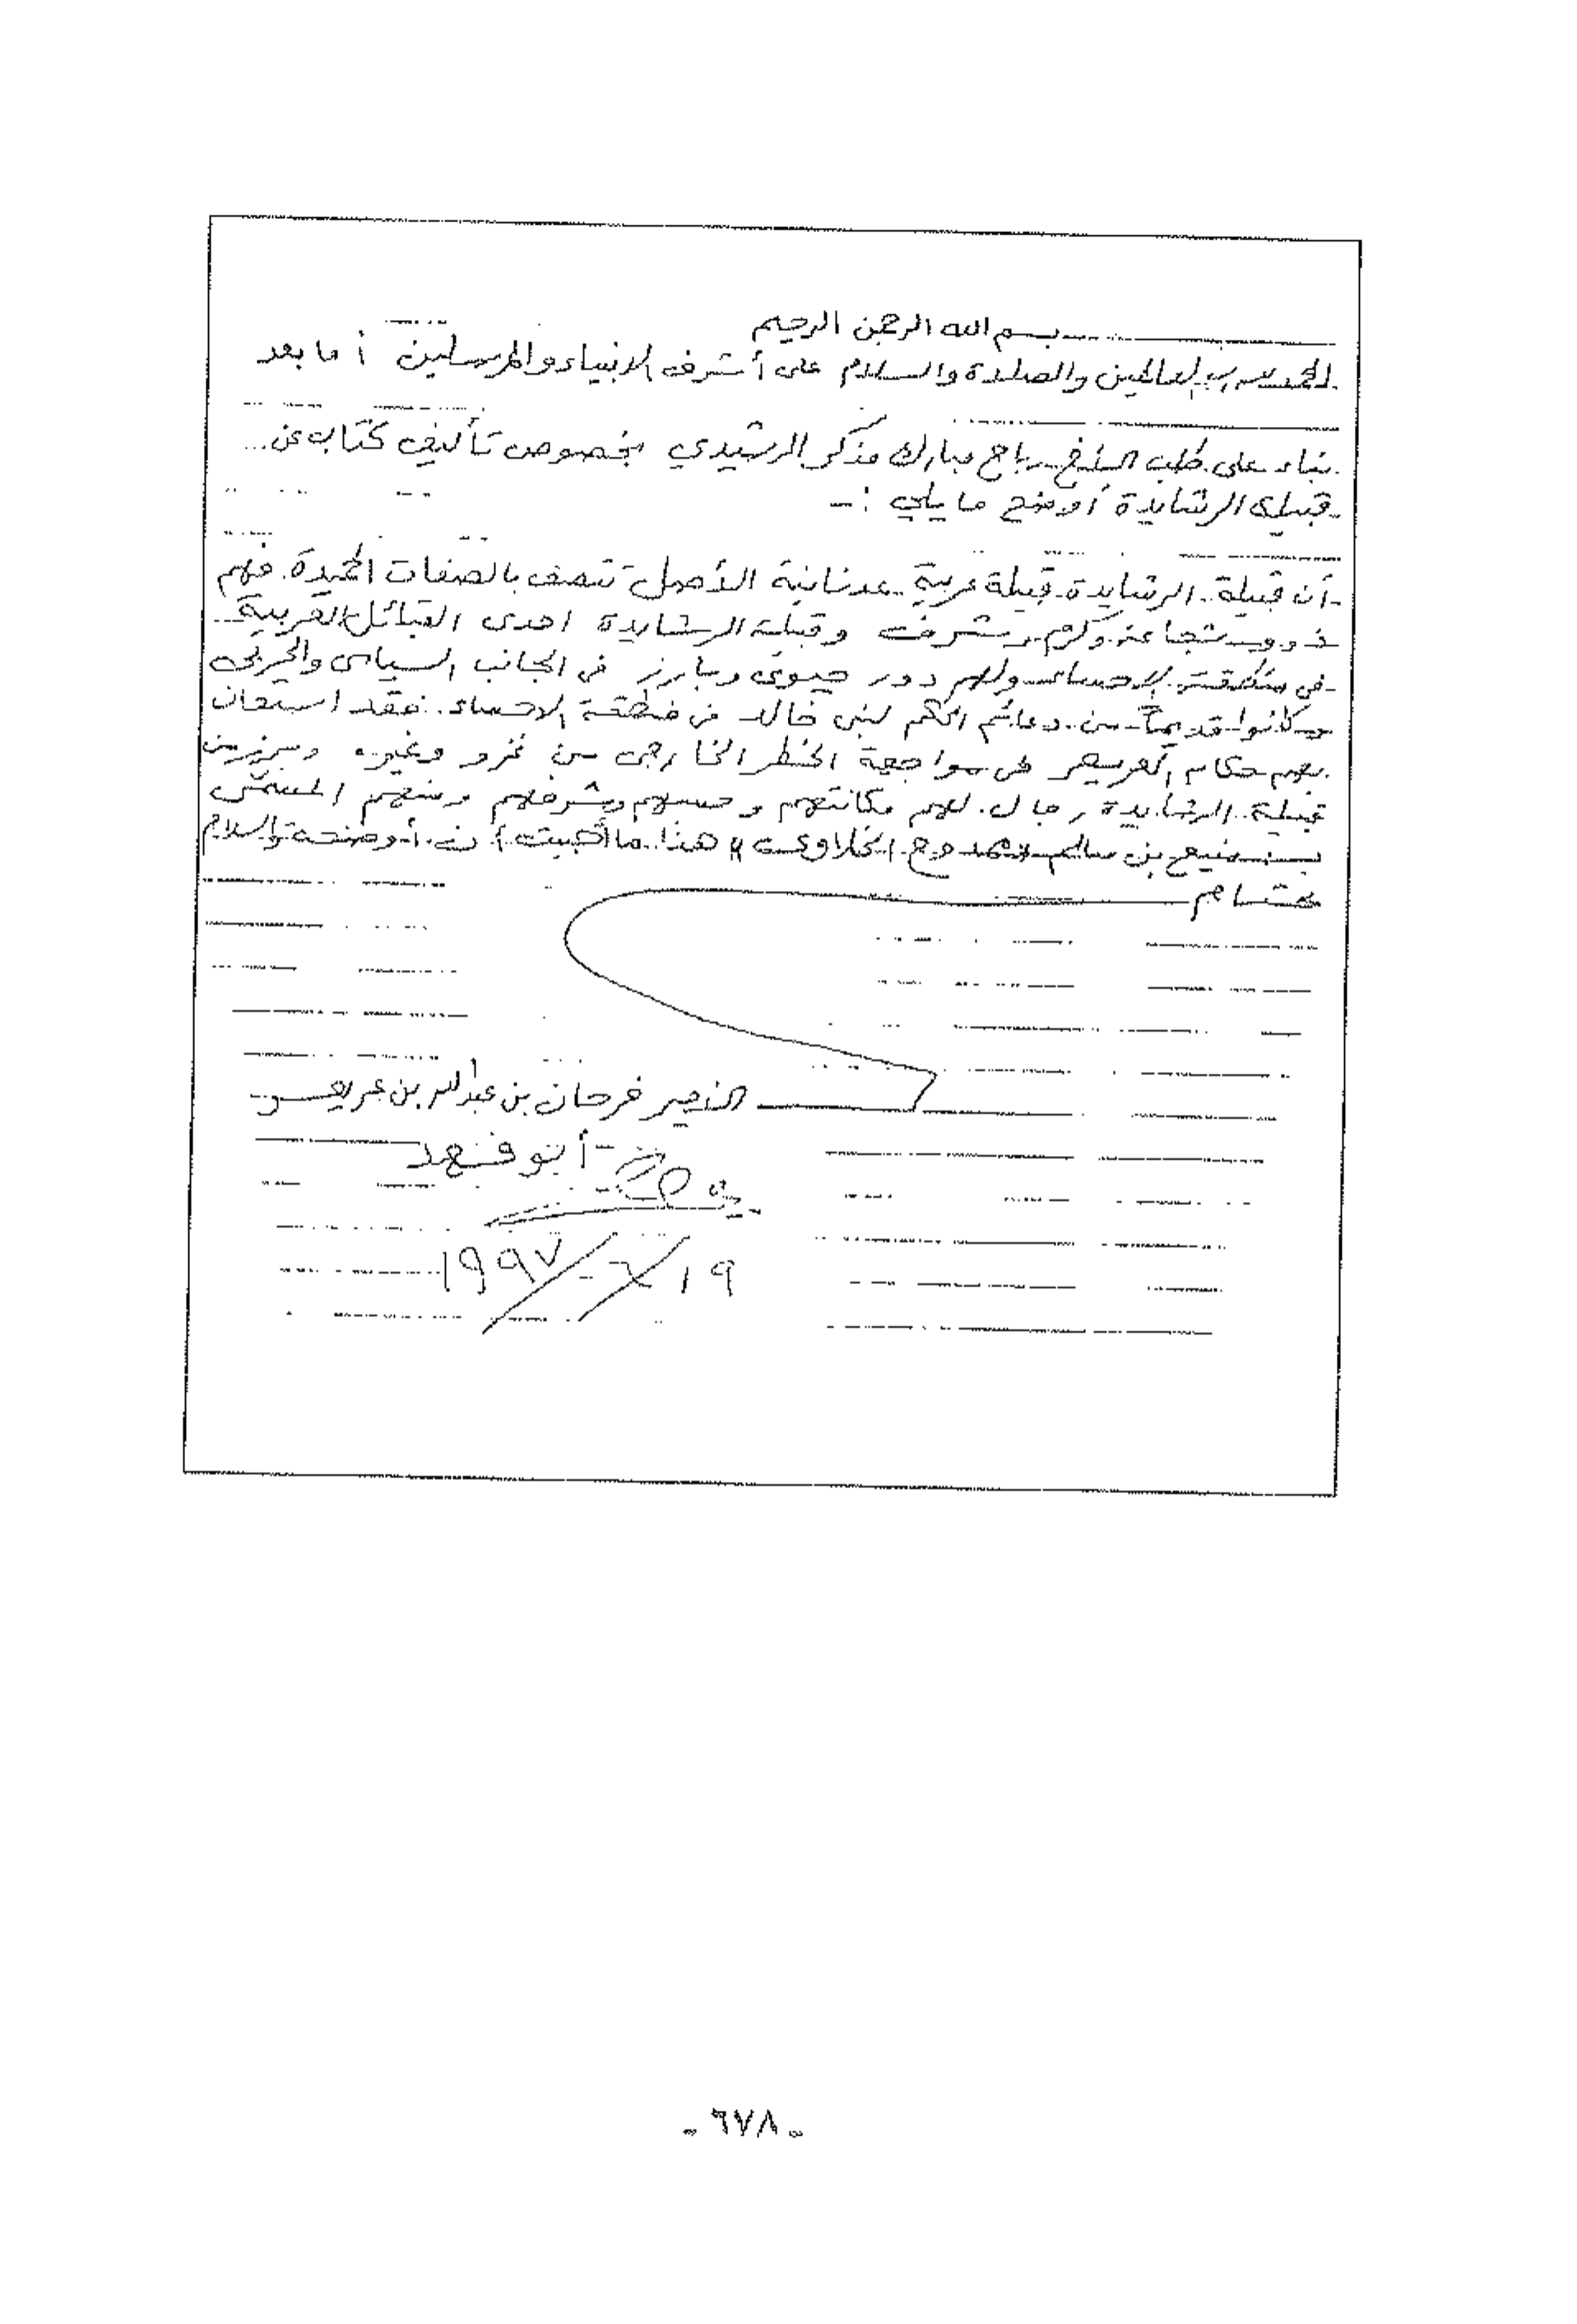 بسم الله الرحمن الرحيم
الحمد لله رب العالمين والصلاة والسلام على أشرف الانبياء والمرسلين أما بعد
بناء على طلب رباح مبارك مذكر الرشيدي بخصوص تأليف كتاب عن
قبيلة الرشايدة أوضح ما يلي :-
أن قبيلة الرشايدة قبيلة عربية عدنانية الأصل تتصف بالصفات الحميدة فهم
ذوو شجاعة وكرم وشرف وقبيلة الرشايدة احدى القبائل العربية
في منطقة الاحساء ولهم دور حيوي وبارز في الجانب السياسي والحربي
وكانوا قديماً من دعائم الحكم لبني خالد في منطقة الاحساء فقد استعان
بهم حكام العريعر في مواجهة الخطر الخارجي من غزو وغيره ويبرز من
قبيلة الرشايدة رجال لهم مكانتهم وحسبهم وشرفهم ومنهم
منيع بن سالم الخلاوي هذا ما أحببت أن أوضحه والسلام
ختام
فرحان بن عبدالله بن عريعر
أبو فهد
١٩/٦/١٩٩٧
- ٦٧٨ -